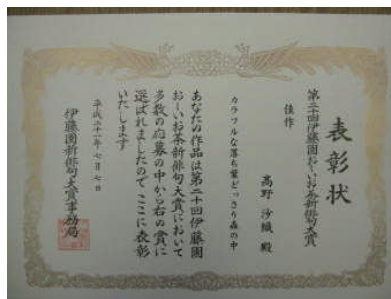 表彰状
第二十回伊藤園おーいお茶新俳句大賞
佳作
高野 沙織 殿
カラフルな落ち葉どっさり森の中
あなたの作品は第二十回伊藤園
おーいお茶新俳句大賞において
多数の応募の中から右の賞に
選ばれましたのでここに表彰
いたします
平成二十一年七月七日
伊藤園新俳句大賞事務局